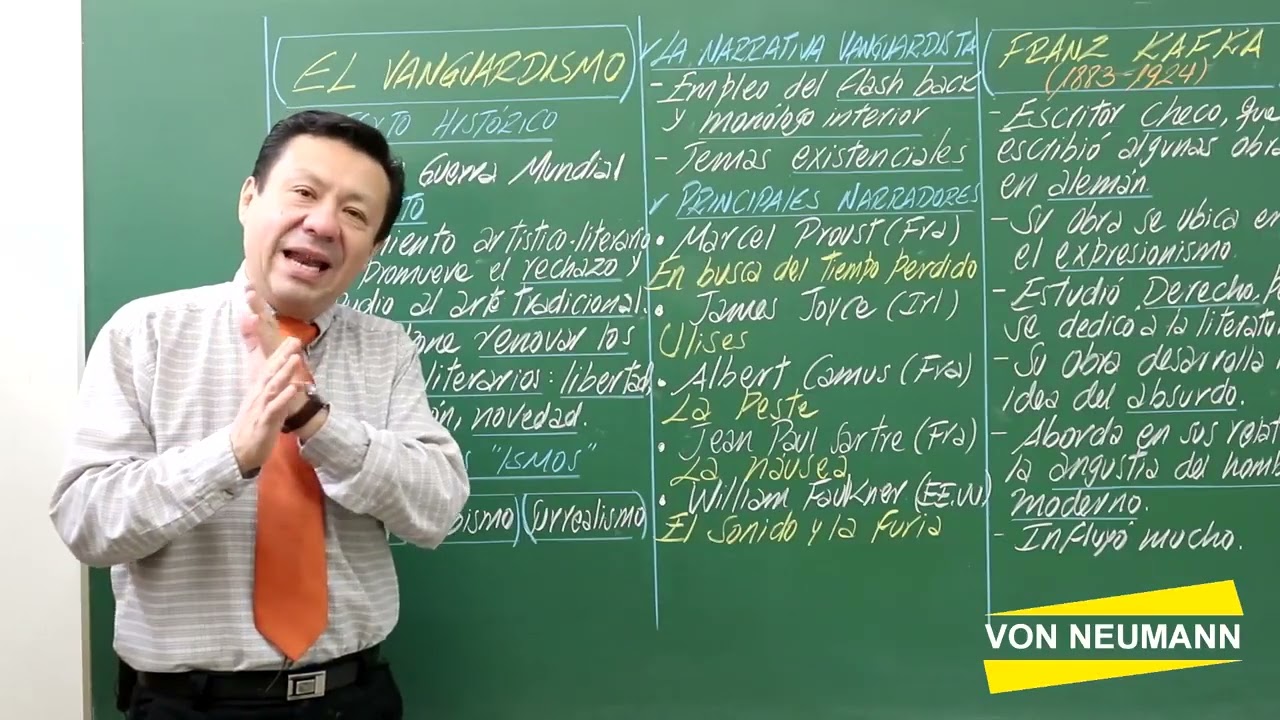 EL VANGUARDISMO
HISTÓRICO
Guerra Mundial
artístico-literario
Promueve el rechazo y
al arte tradicional.
renovar los
literarios: libertad,
novedad.
"ISMOS"
Surrealismo
LA NARRATIVA VANGUARDISTA
- Empleo del flash back
y monólogo interior
- Temas existenciales
PRINCIPALES NARRADORES
• Marcel Proust (Fra)
En busca del Tiempo Perdido
• James Joyce (Irl)
Ulises
• Albert Camus (Fra)
La Peste
• Jean Paul Sartre (Fra)
La náusea
• William Faulkner (EE.UU)
El sonido y la furia
FRANZ KAFKA
(1883-1924)
- Escritor Checo, que
escribió algunas
en alemán
- Su obra se ubica en
el expresionismo.
- Estudió Derecho,
se dedicó a la
- Su obra desarrolla
idea del absurdo.
- Aborda en sus
la angustia del
moderno.
- Influyó mucho.
VON NEUMANN